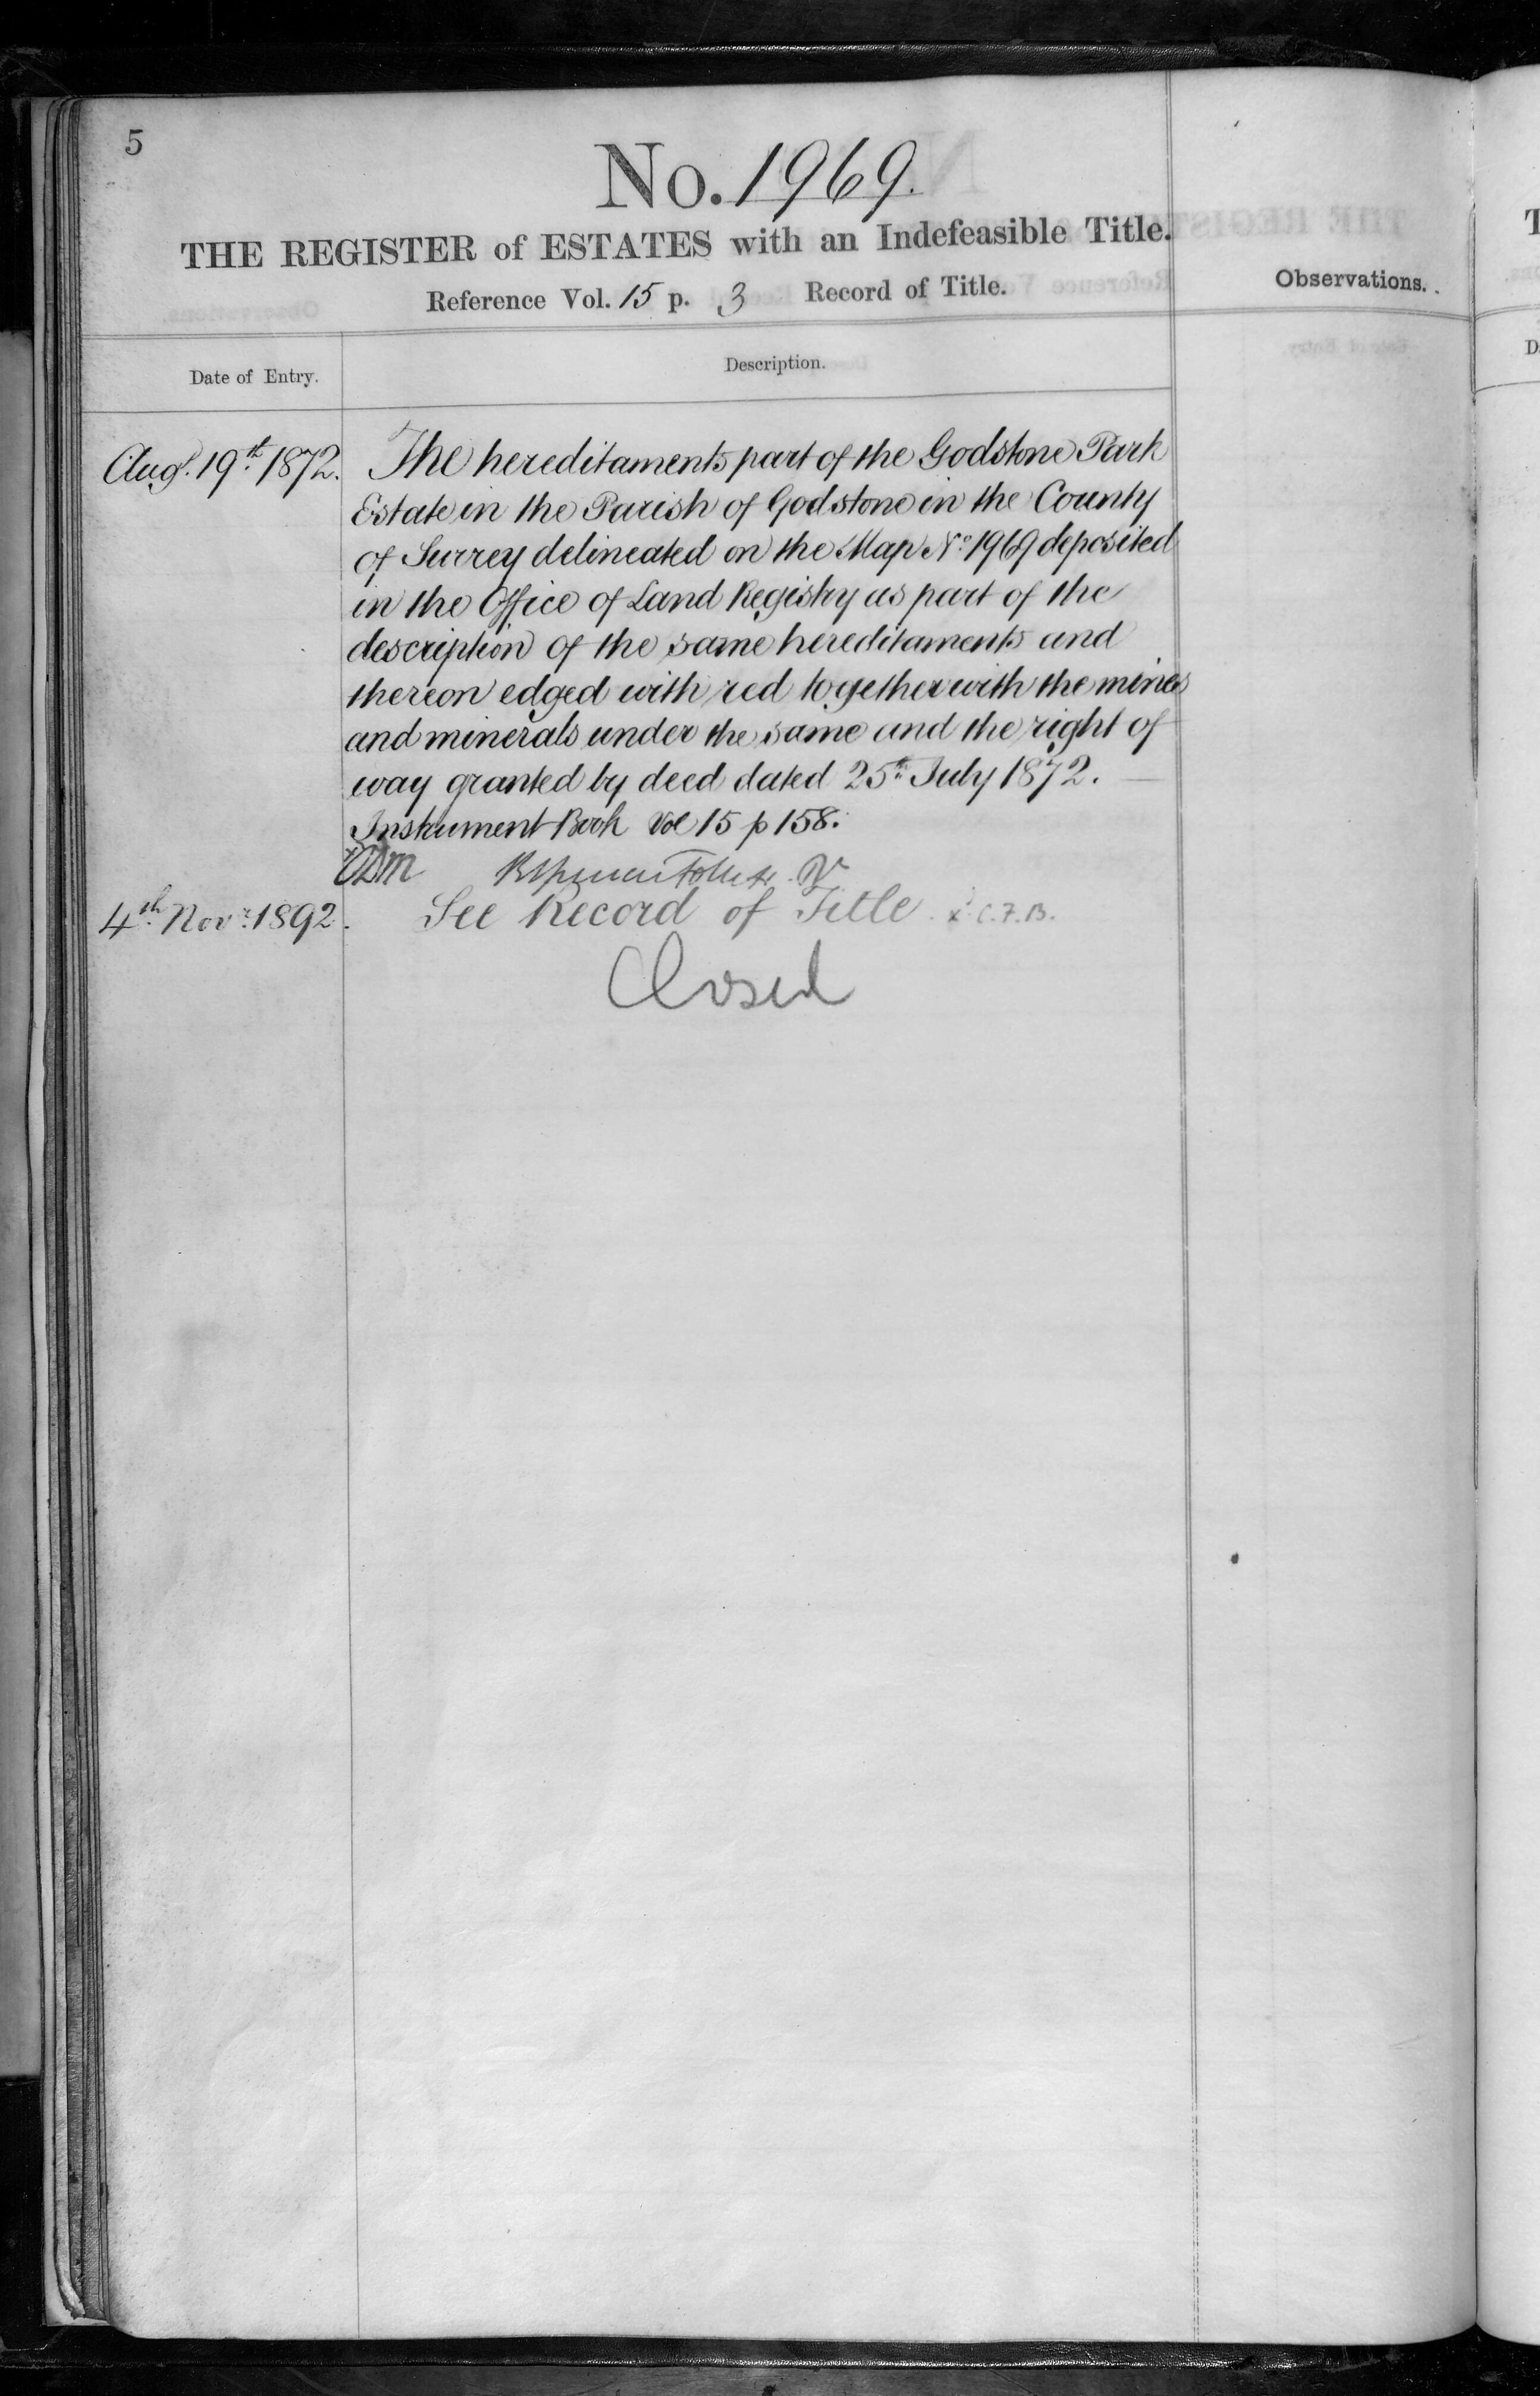 5
No. 1969.
THE REGISTER of ESTATES with an Indefeasible Title.
Reference Vol. 15 p. 3 Record of Title.
Observations.
Date of Entry.
Description.
Augt. 19th 1872.
The hereditaments part of the Godstone Park
Estate in the Parish of Godstone in the County
of Surrey delineated on the Map No. 1969 deposited
in the Office of Land Registry as part of the
description of the same hereditaments and
thereon edged with red together with the mines
and minerals under the same and the right of
way granted by deed dated 25th July 1872. —
Instrument Book Vol 15 p 158.
4th Novr. 1892.
See Record of Title. x C.F.B.
Closed